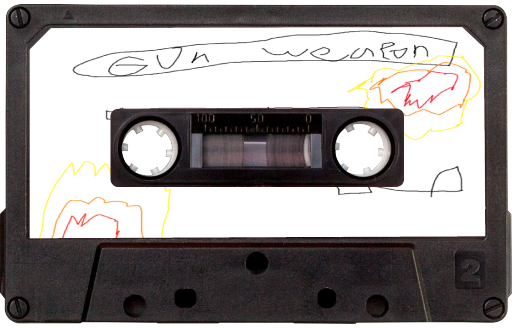 GUn weapon
100 50 0
2